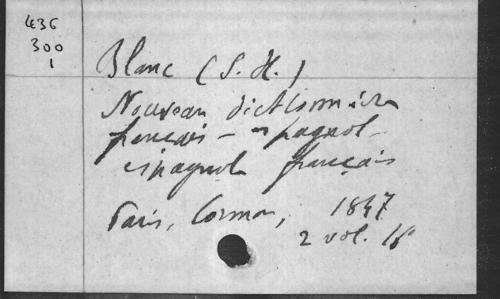 436
300
1
Blanc (S. H.)
Nouveau dictionnaire
français-espagnol-
espagnol français
Paris, Cormon, 1847
2 vol. 16°